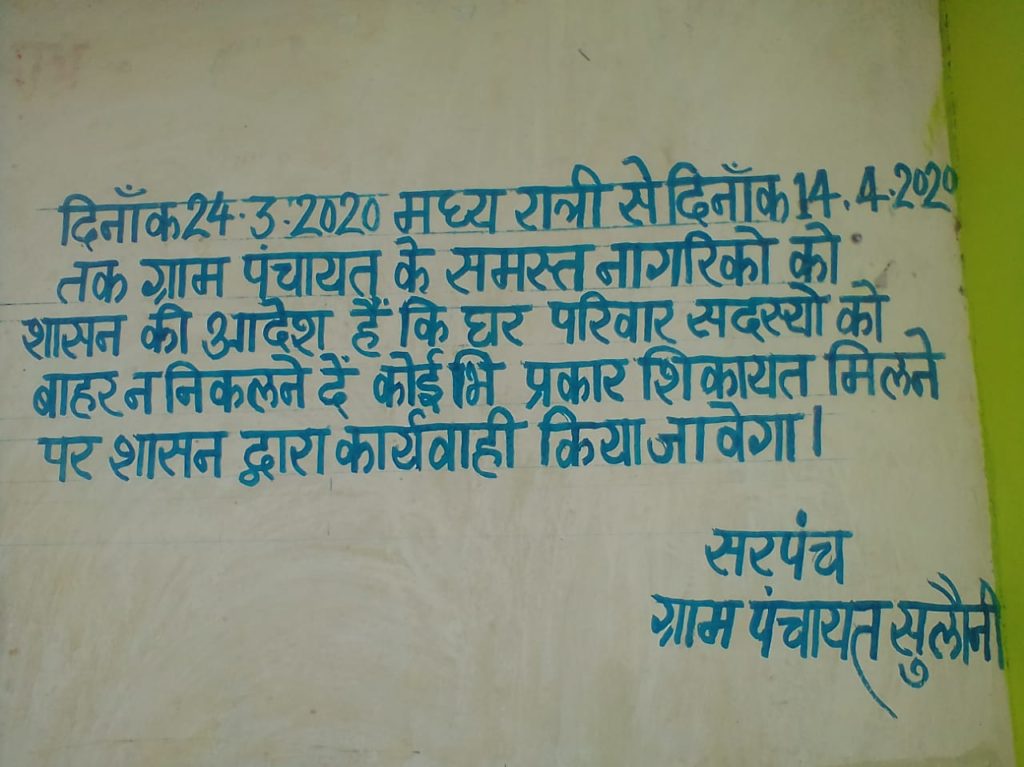 दिनाँक 24.3.2020 मध्य रात्री से दिनाँक 14.4.2020
तक ग्राम पंचायत के समस्त नागरिको को
शासन की आदेश हैं कि घर परिवार सदस्यो को
बाहर न निकलने दें कोई भि प्रकार शिकायत मिलने
पर शासन द्वारा कार्यवाही किया जावेगा।
सरपंच
ग्राम पंचायत सुलौनी